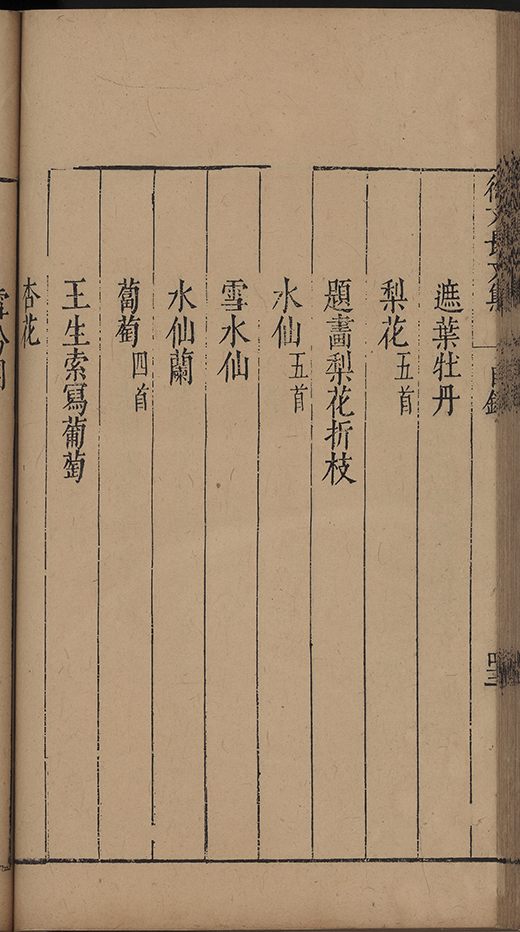 徐文長文集
目錄
遮葉牡丹
梨花五首
題畫梨花折枝
水仙五首
雪水仙
水仙蘭
蔔萄四首
王生索寫葡萄
杏花